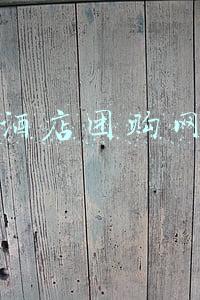 酒店团购网